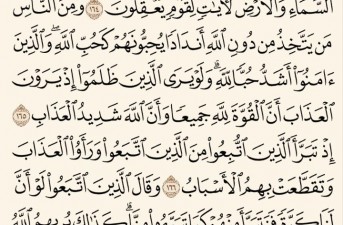 السَّمَآءِ وَالْأَرْضِ لَآيَٰتٍ لِّقَوْمٍ يَعْقِلُونَ ١٦٤ وَمِنَ النَّاسِ
مَن يَتَّخِذُ مِن دُونِ اللَّهِ أَندَادًا يُحِبُّونَهُمْ كَحُبِّ اللَّهِ ۖ وَالَّذِينَ
ءَامَنُوٓا۟ أَشَدُّ حُبًّا لِّلَّهِ ۗ وَلَوْ يَرَى الَّذِينَ ظَلَمُوٓا۟ إِذْ يَرَوْنَ
الْعَذَابَ أَنَّ الْقُوَّةَ لِلَّهِ جَمِيعًا وَأَنَّ اللَّهَ شَدِيدُ الْعَذَابِ ١٦٥
إِذْ تَبَرَّأَ الَّذِينَ اتُّبِعُوا۟ مِنَ الَّذِينَ اتَّبَعُوا۟ وَرَأَوُا۟ الْعَذَابَ
وَتَقَطَّعَتْ بِهِمُ الْأَسْبَابُ ١٦٦ وَقَالَ الَّذِينَ اتَّبَعُوا۟ لَوْ أَنَّ
لَنَا كَرَّةً فَنَتَبَرَّأَ مِنْهُمْ كَمَا تَبَرَّءُوا۟ مِنَّا ۗ كَذَٰلِكَ يُرِيهِمُ اللَّهُ